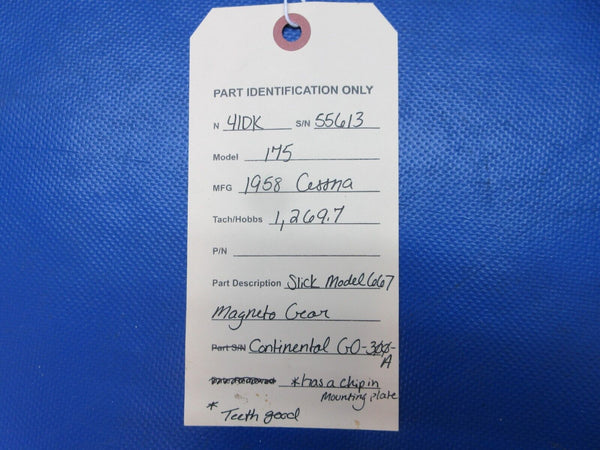 PART IDENTIFICATION ONLY
N 41DK S/N 55613
Model 175
MFG 1958 Cessna
Tach/Hobbs 1,269.7
P/N
Part Description Slick Model 667
Magneto Gear
Part S/N Continental GO-300-
A
*has a chip in
Mounting plate
* Teeth good